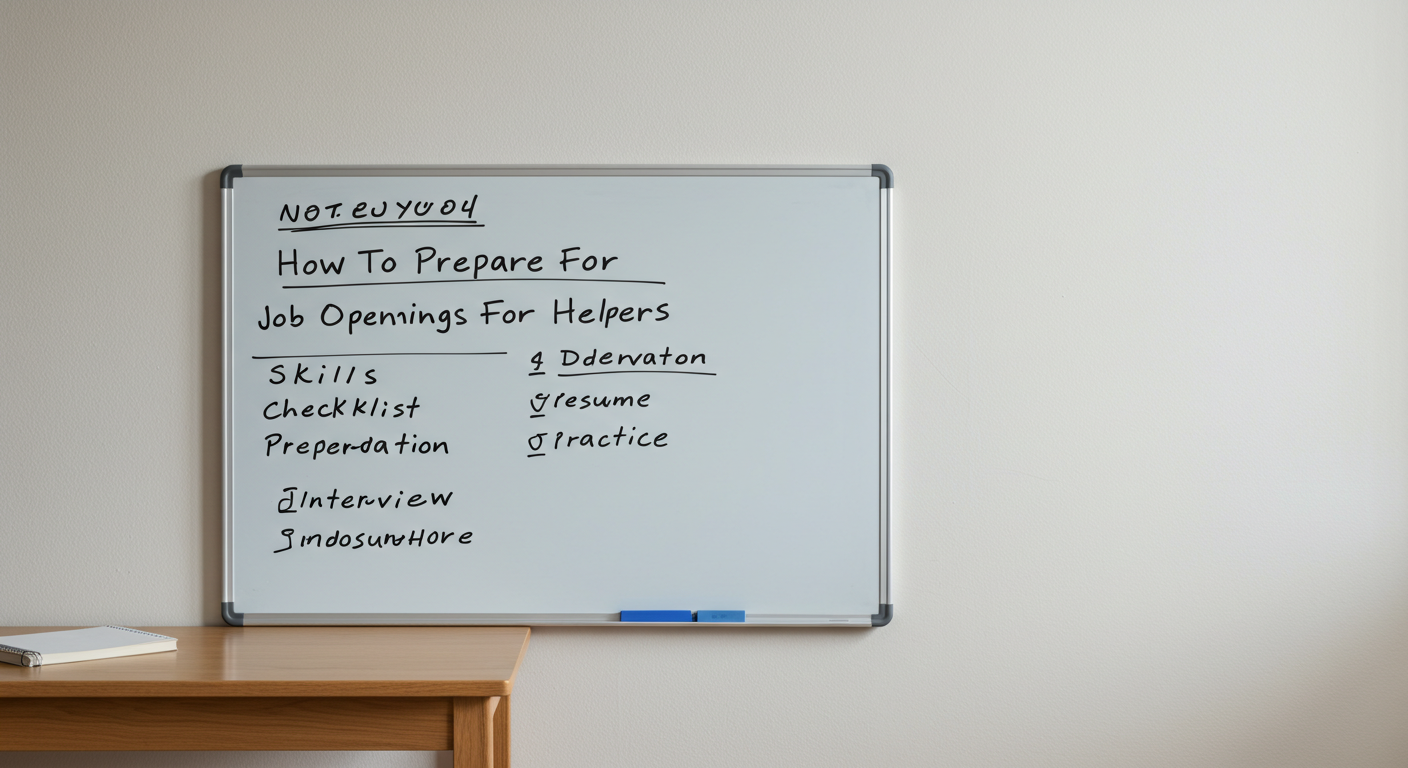 How To Prepare For
Job Openings For Helpers
Skills
Checkklist
Preper-dation
Interview
4 Ddervaton
resume
Practice